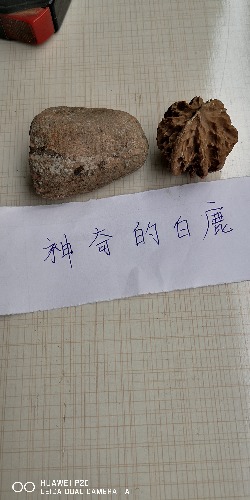 神奇的白鹿
HUAWEI P20
LEICA DUAL CAMERA